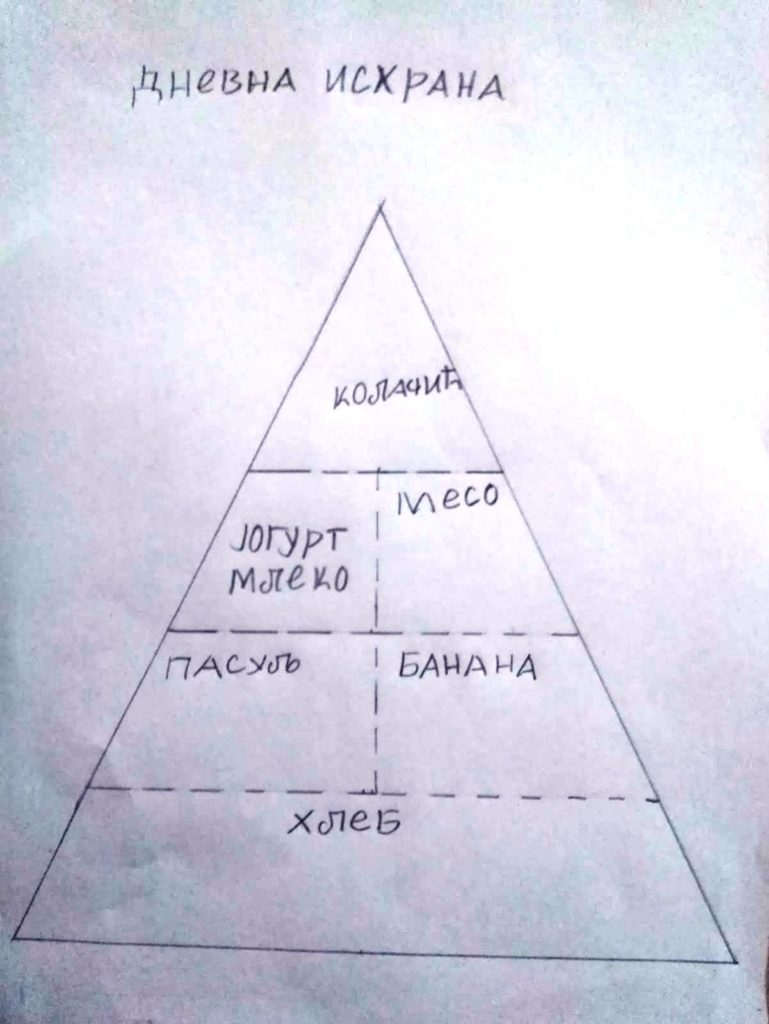 ДНЕВНА ИСХРАНА
КОЛАЧИЋ
МЕСО
ЈОГУРТ
МЛЕКО
ПАСУЉ
БАНАНА
ХЛЕБ